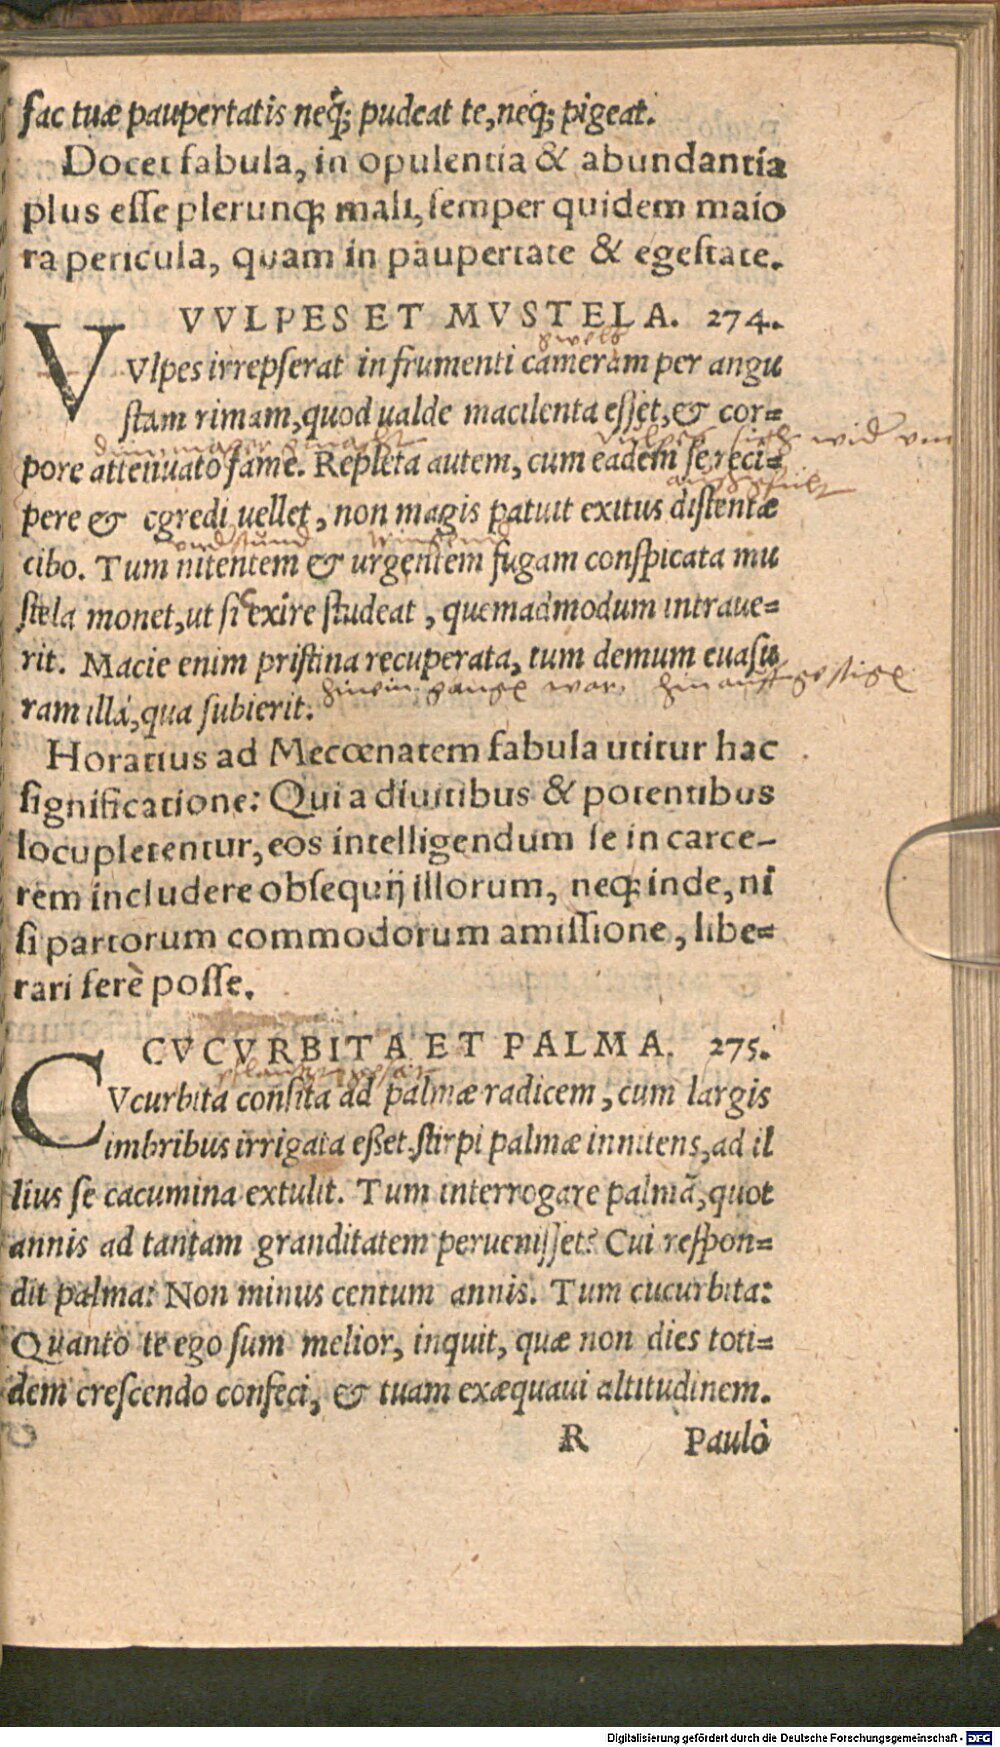 fac tuæ paupertatis neq́; pudeat te, neq́; pigeat.
Docet fabula, in opulentia & abundantia
plus eſſe plerunq; mali, ſemper quidem maio
ra pericula, quam in paupertate & egeſtate.
VVLPES ET MVSTELA. 274.
VVlpes irrepſerat in frumenti cameram per angu
ſtam rimam, quod ualde macilenta eſſet, & cor=
pore attenuato fame. Repleta autem, cum eadem ſe reci=
pere & egredi uellet, non magis patuit exitus diſtentæ
cibo. Tum nitentem & urgentem fugam conſpicata mu
ſtela monet, ut ſi exire ſtudeat, quemadmodum intraue=
rit. Macie enim priſtina recuperata, tum demum euaſu
hinein gangẽ war, hinauſz
ram illà, qua ſubierit.
Horatius ad Mecœnatem fabula utitur hac
ſignificatione: Qui a diuitibus & potentibus
locupletentur, eos intelligendum ſe in carce-
rem includere obſequij illorum, neq; inde, ni
ſi partorum commodorum amiſſione, libe=
rari ferè poſſe.
CVCVRBITA ET PALMA. 275.
CVcurbita conſita ad palmæ radicem, cum largis
imbribus irrigata eßet, ſtirpi palmæ innitens, ad il
lius ſe cacumina extulit. Tum interrogare palmã, quot
annis ad tantam granditatem perueniſſet? Cui reſpon=
dit palma: Non minus centum annis. Tum cucurbita:
Quanto te ego ſum melior, inquit, quæ non dies toti=
dem creſcendo confeci, & tuam exæquaui altitudinem.
R Paulò
Digitalisierung gefördert durch die Deutsche Forschungsgemeinschaft - DFG